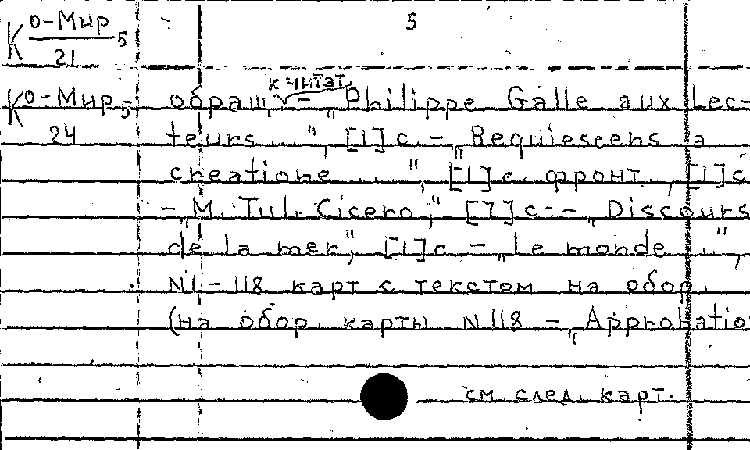 К о-Мир 5
21
5
К о-Мир 5
24
к читат.
обращ. - „Philippe Galle aux Lec-
teurs...", [1] с. - „Requiescens a
creatione...", [1] с. фронт., [1] с.
- „M. Tul. Cicero," [7] с. - „Discours
de la mer", [1] с. - „Le monde...",
N1-118 карт с текстом на обор.
(на обор. карты N118 - „Approbatio
см след. карт.